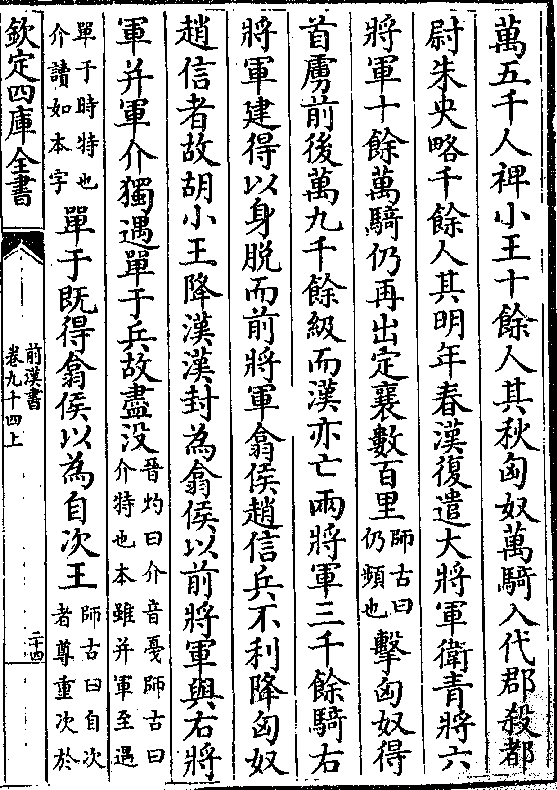 萬五千人裨小王十餘人其秋匈奴萬騎入代郡殺都
尉朱央略千餘人其明年春漢復遣大將軍衛青將六
將軍十餘萬騎仍再出定襄數百里師古曰仍頻也擊匈奴得
首虜前後萬九千餘級而漢亦亡兩將軍三千餘騎右
將軍建得以身脫而前將軍翕侯趙信兵不利降匈奴
趙信者故胡小王降漢漢封為翕侯以前將軍與右將
軍并軍介獨遇單于兵故盡沒晉灼曰介音戛師古曰介特也本雖并軍至遇
單于時特也介讀如本字單于既得翕侯以為自次王師古曰自次者尊重次於
欽定四庫全書
前漢書
卷九十四上
二十四